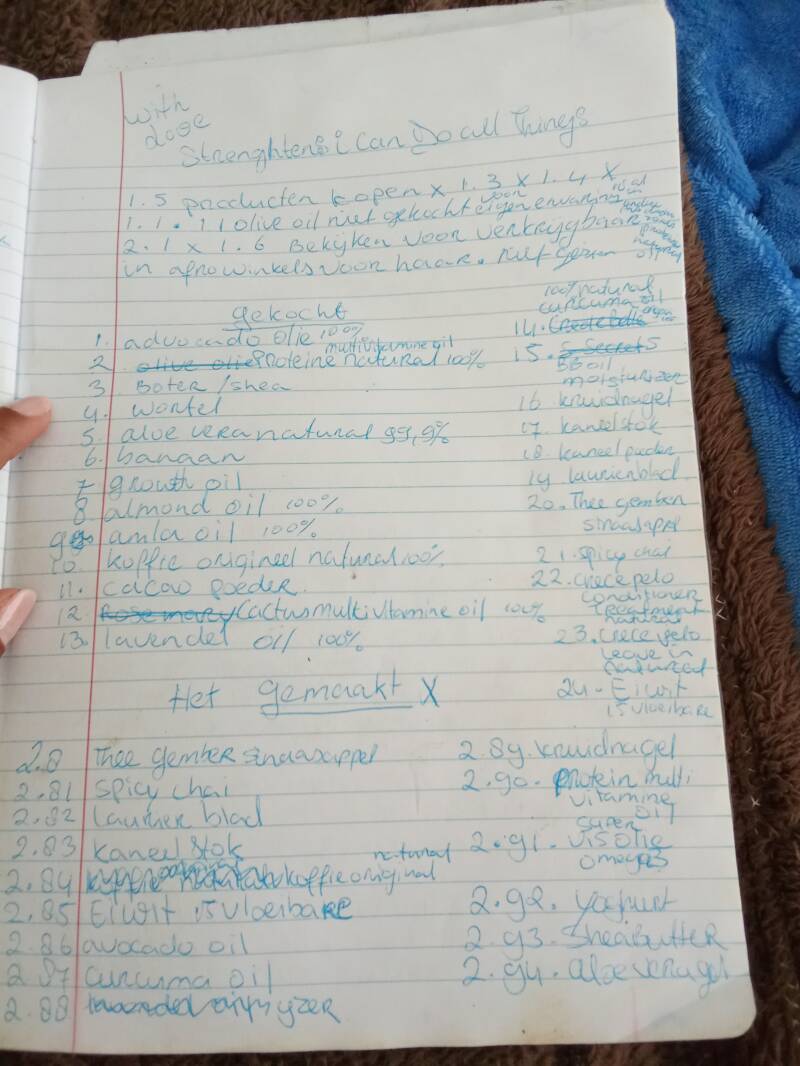 with
dose
Strenghtens i Can Do all Things
1.5 producten kopen x 1.3 x 1.4 x
1.1. 11 olive oil niet gekocht voor eigen ervaring
2.1 x 1.6 Bekijken voor verkrijgbaar
in afrowinkels voor haar. niet gezien
gekocht
1. advocado olie 100%
2 olive olie Proteine natural 100%
multivitamine oil
3 Boter / shea
4. wortel
5 aloe vera natural 99,9%
6. banaan
7 growth oil
8 almond oil 100%
9 amla oil 100%
10. koffie origineel natural 100%
11. cacao poeder
12 Rosemary Cactus multivitamine oil 100%
13. lavendel oil 100%
100% natural
curcuma oil
14.
15. 5 Secrets
BB oil
moisturizer
16 kruidnagel
17. kaneelstok
18. kaneel puder
19 laurierblad
20. Thee gember
sinaasappel
21. spicy chai
22. crecepelo
conditioner
treatment
natural
23. Crece pelo
leave in
natural
24. Eiwit
15 vloeibare
Het gemaakt X
2.8 Thee gember sinaasappel
2.81 spicy chai
2.82 laurier blad
2.83 kaneel stok
2.84 koffie original
natural
2.85 Eiwit 15 vloeibare
2.86 avocado oil
2.87 curcuma oil
2.88
2.89. kruidnagel
2.90. protein multi
vitamine
oil
super
2.91. visolie
omega3
2.92. yoghurt
2.93. Sheabutter
2.94. aloe vera gel